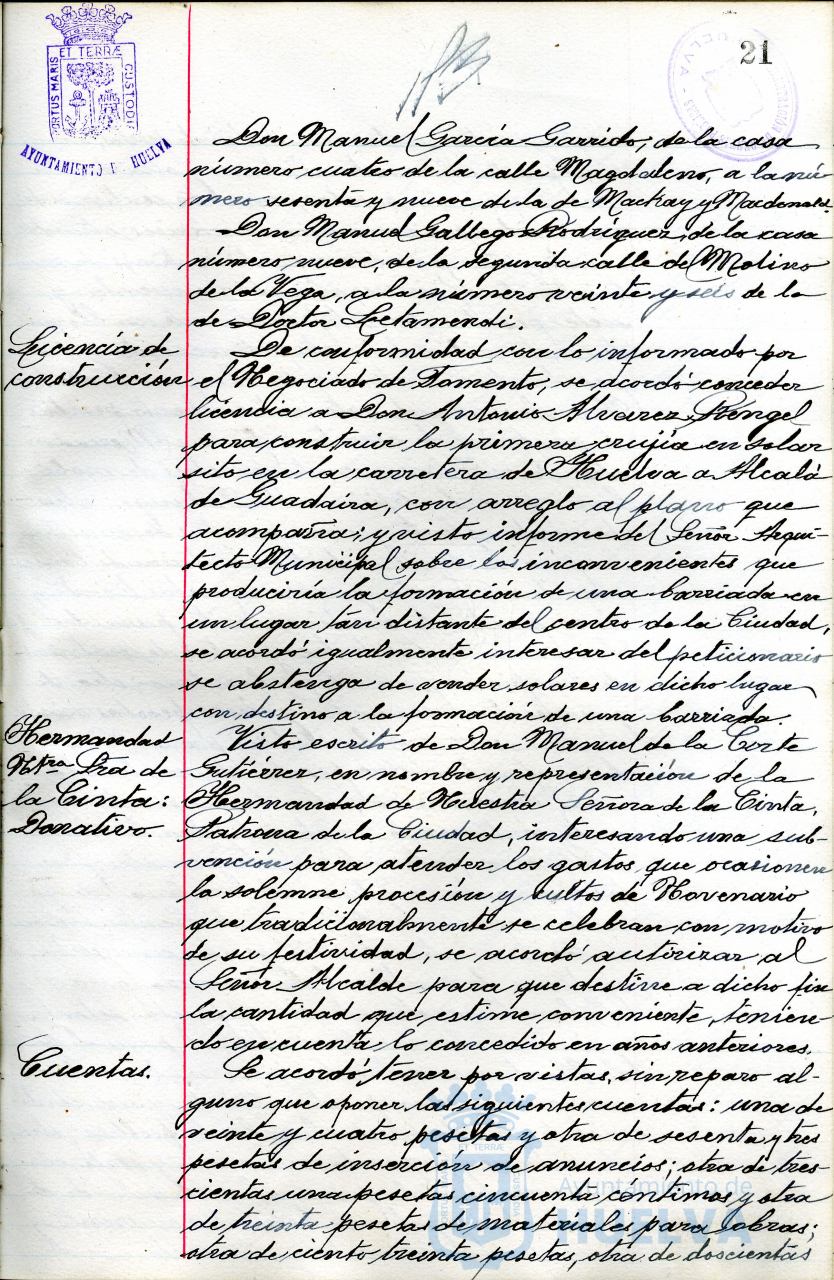 21
PORTUS MARIS ET TERRÆ CUSTODIA
AYUNTAMIENTO DE HUELVA
Don Manuel García Garrido, de la casa
número cuatro de la calle Magdalena, a la nú-
mero sesenta y nueve de la de Mackay y Macdonald.
Don Manuel Gallego Rodríguez, de la casa
número nueve, de la segunda calle del Molino
de la Vega, a la número veinte y seis de la
de Doctor Letamendi.
Licencia de
construcción
De conformidad con lo informado por
el Negociado de Fomento, se acordó conceder
licencia a Don Antonio Alvarez Rengel
para construir la primera crujía en solar
sito en la carretera de Huelva a Alcalá
de Guadaira, con arreglo al plano que
acompaña; y visto informe del Señor Arqui-
tecto Municipal sobre los inconvenientes que
produciría la formación de una barriada en
un lugar tan distante del centro de la Ciudad,
se acordó igualmente interesar del peticionario
se abstenga de vender solares en dicho lugar
con destino a la formación de una barriada.
Hermandad
Ntra Sra de
la Cinta:
Donativo.
Visto escrito de Don Manuel de la Corte
Gutiérrez, en nombre y representación de la
Hermandad de Nuestra Señora de la Cinta,
Patrona de la Ciudad, interesando una sub-
vención para atender los gastos que ocasionen
la solemne procesión y cultos de Novenario
que tradicionalmente se celebran con motivo
de su festividad, se acordó autorizar al
Señor Alcalde para que destine a dicho fin
la cantidad que estime conveniente, tenien-
do en cuenta lo concedido en años anteriores.
Cuentas.
Se acordó tener por vistas, sin reparo al-
guno que oponer, las siguientes cuentas: una de
veinte y cuatro pesetas y otra de sesenta y tres
pesetas de inserción de anuncios; otra de tres-
cientas una pesetas cincuenta céntimos y otra
de treinta pesetas de materiales para obras;
otra de ciento treinta pesetas, otra de doscientas
Ayuntamiento de
HUELVA